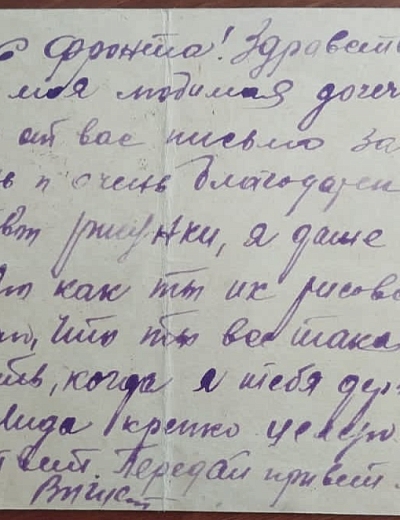 С фронта! Здравств
моя любимая дочен
от вас письмо за
ь и очень благодарен
рисунки, я даже
как ты их рисова
что ты вот така
ть, когда я тебя дер
Лида крепко целую
Передай привет